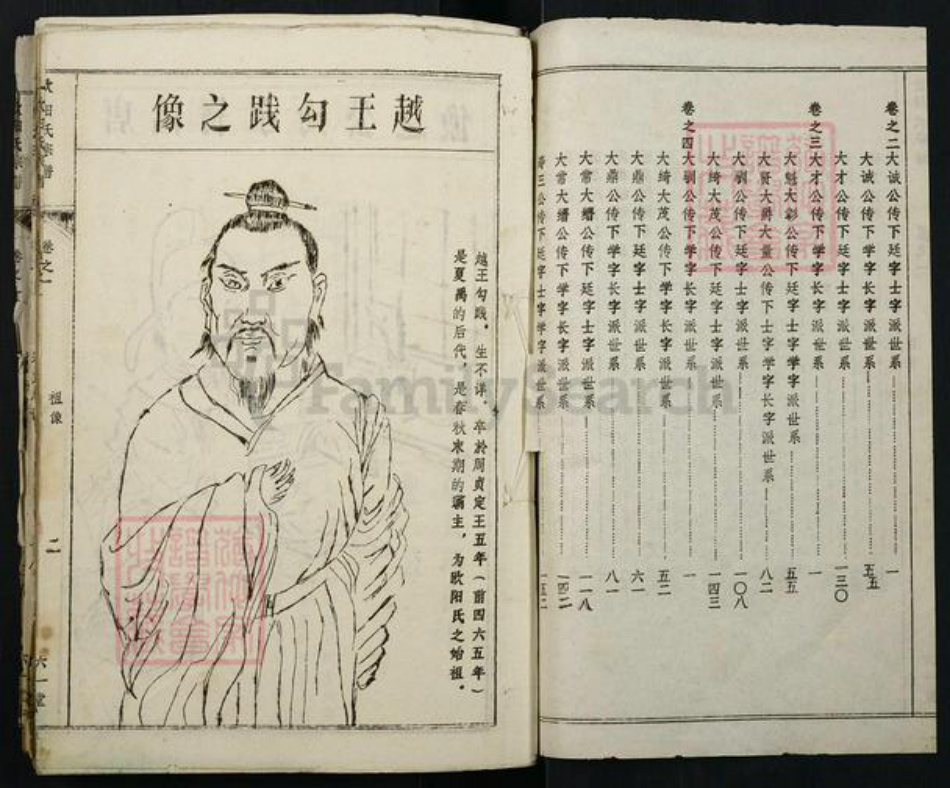 卷之二大诚公传下廷字士字派世系 一
大诚公传下学字长字派世系 五五
大才公传下廷字士字派世系 一三〇
卷之三大才公传下学字长字派世系 一
大魁大彩公传下廷字士字学字派世系 五五
大贤大爵大量公传下士字学字长字派世系 八二
大驯公传下廷字士字派世系 一〇八
大绮大茂公传下廷字士字派世系 一四三
卷之四大驯公传下学字长字派世系 一
大绮大茂公传下学字长字派世系 五二
大鼎公传下廷字士字派世系 六一
大鼎公传下学字长字派世系 八一
大常大缙公传下廷字士字派世系 一一八
大常大缙公传下学字长字派世系 一四二
三公传下廷字士字学字派世系 一五二
越王勾践之像
越王勾践，生不详，卒於周贞定王五年（前四六五年）
是夏禹的后代，是春秋末期的霸主，为欧阳氏之始祖。
阳氏宗谱
卷之一
祖像
二
六一堂
FamilySearch